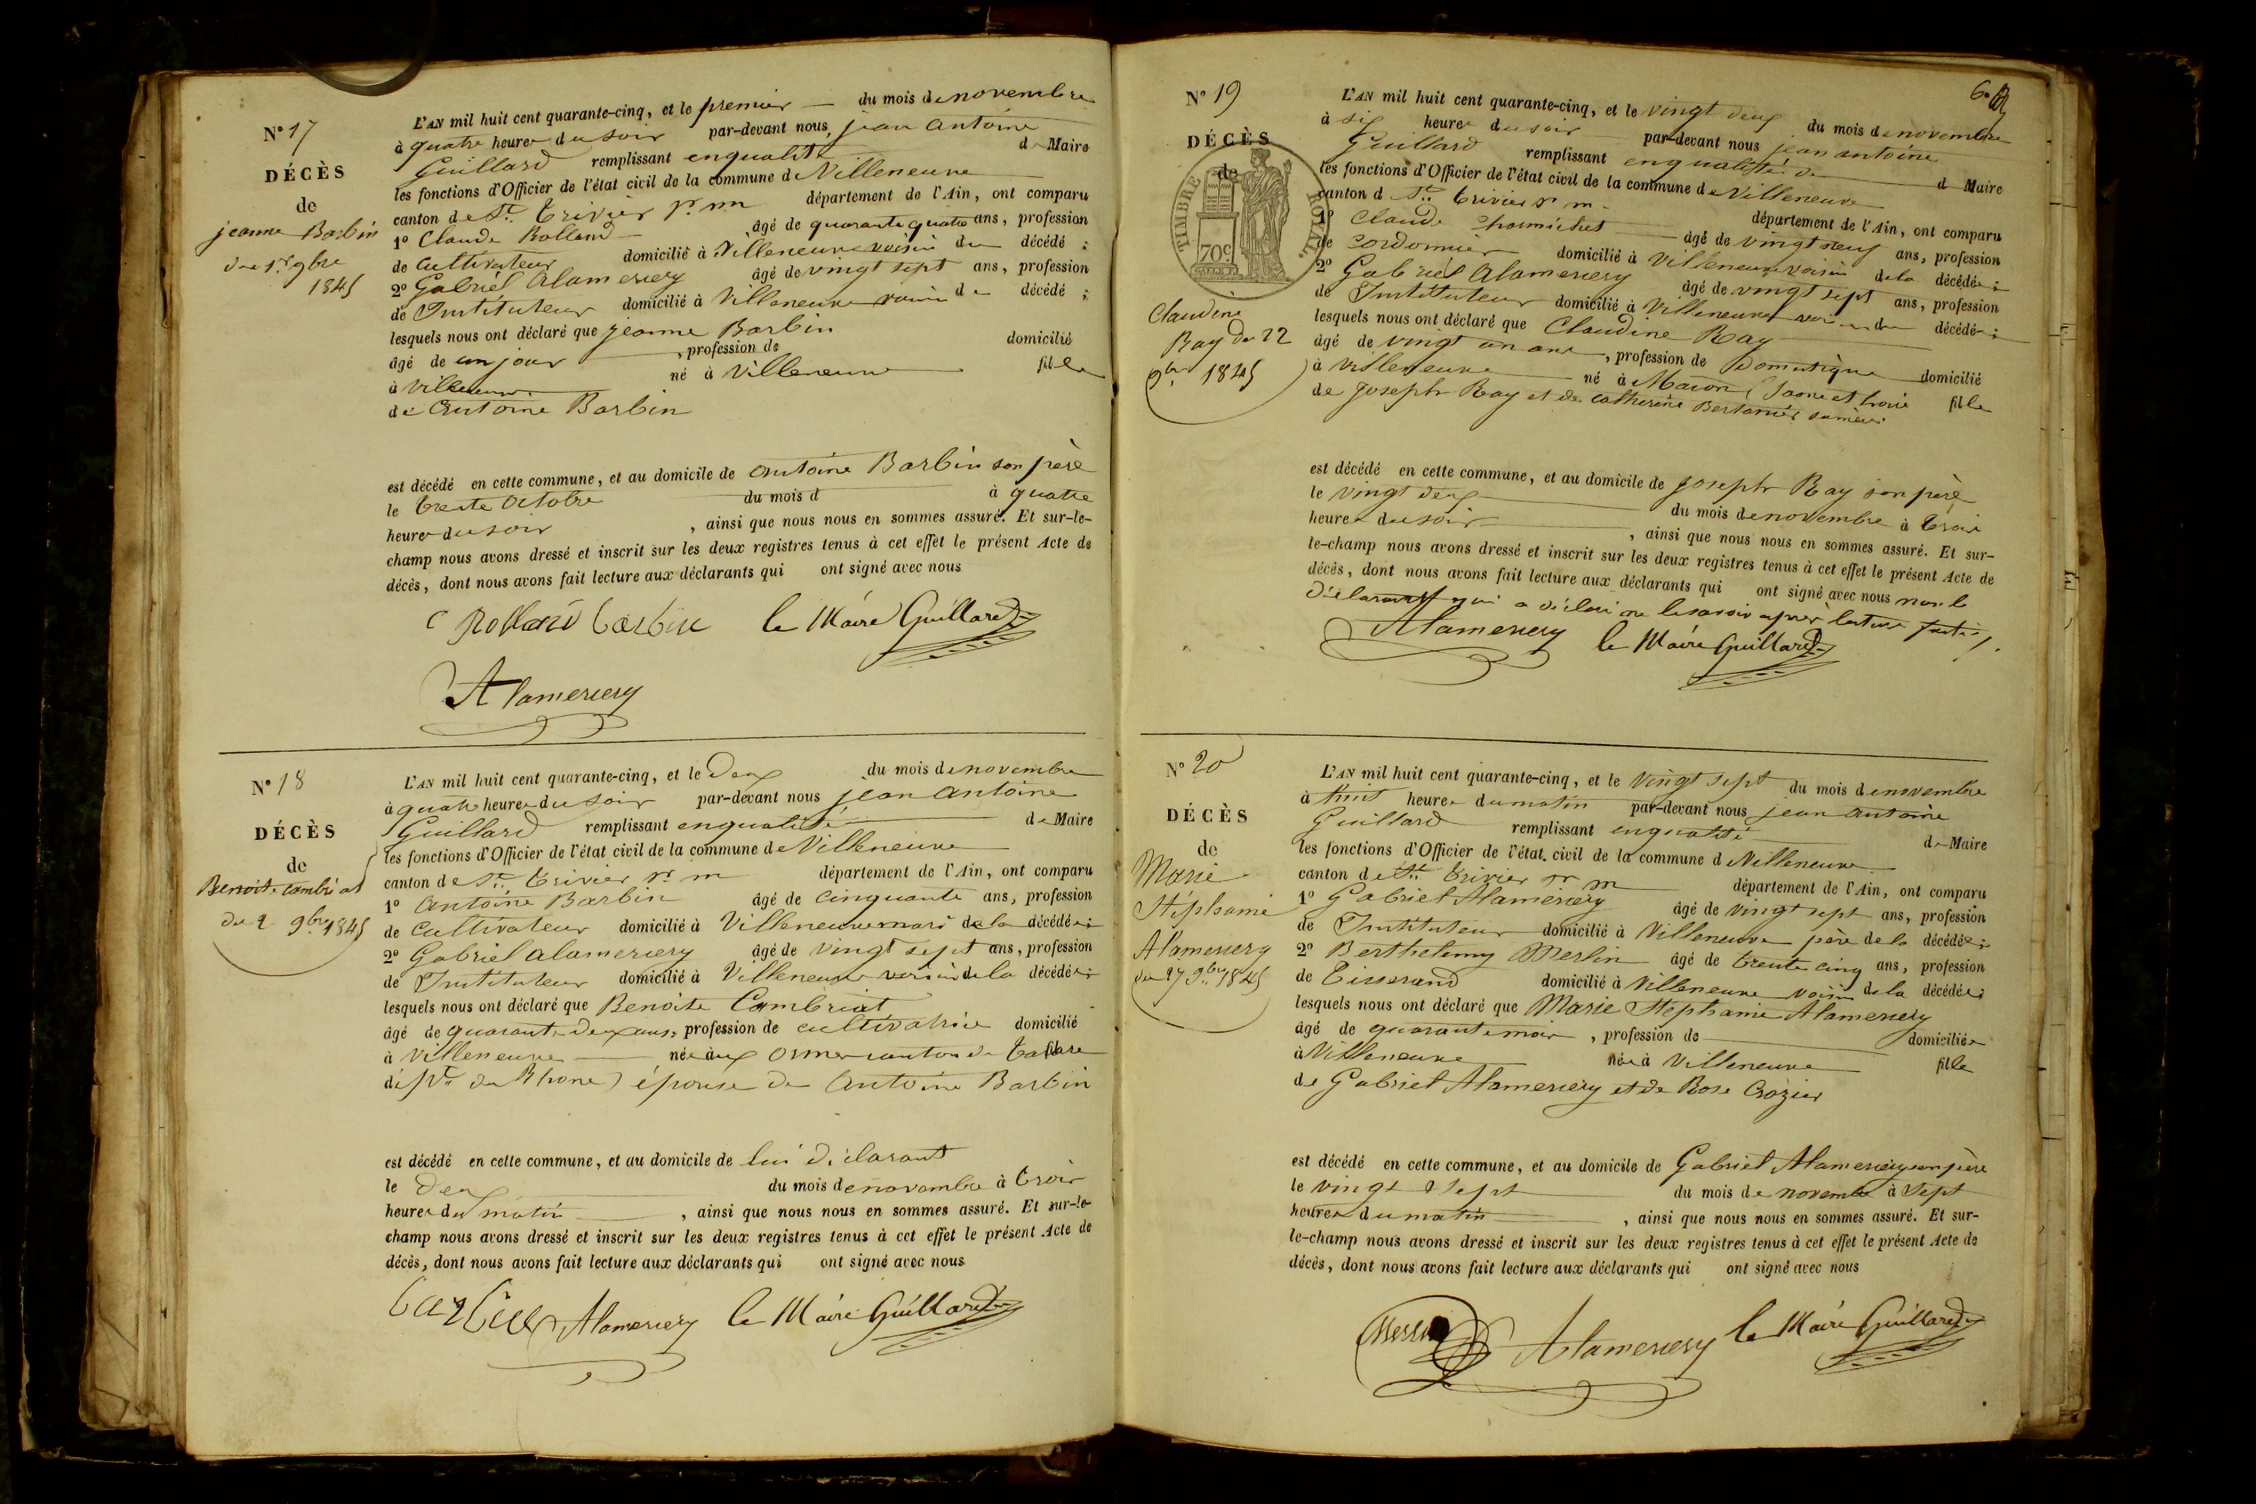 N° 17
DÉCÈS
de
jeanne Barbin
du 1er 9bre
1845
L'AN mil huit cent quarante-cinq, et le premier du mois de novembre
à quatre heures du soir par-devant nous, jean antoine
Guillard remplissant en qualité de Maire
les fonctions d'Officier de l'état civil de la commune de Villeneuve
canton de St. Trivier département de l'Ain, ont comparu
1° Claude Rolland âgé de quarante quatre ans, profession
de Cultivateur domicilié à Villeneuve voisin du décédé ;
2° Gabriel Alamercery âgé de vingt sept ans, profession
de Instituteur domicilié à Villeneuve voisin du décédé ;
lesquels nous ont déclaré que jeanne Barbin
âgé de un jour , profession de domicilié
à Villeneuve né à Villeneuve fille
de Antoine Barbin
est décédé en cette commune, et au domicile de antoine Barbin son père
le trente Octobre du mois d à quatre
heures du soir , ainsi que nous nous en sommes assuré. Et sur-le-
champ nous avons dressé et inscrit sur les deux registres tenus à cet effet le présent Acte de
décès, dont nous avons fait lecture aux déclarants qui ont signé avec nous
C Rolland barbin le Maire Guillard
Alamercery
N° 18
DÉCÈS
de
Benoite Combriat
du 2 9bre 1845
L'AN mil huit cent quarante-cinq, et le Deux du mois de novembre
à quatre heures du soir par-devant nous jean antoine
Guillard remplissant en qualité de Maire
les fonctions d'Officier de l'état civil de la commune de Villeneuve
canton de St. Trivier département de l'Ain, ont comparu
1° Antoine Barbin âgé de cinquante ans, profession
de Cultivateur domicilié à Villeneuve mari de la décédée ;
2° Gabriel Alamercery âgé de vingt sept ans, profession
de Instituteur domicilié à Villeneuve voisin de la décédée ;
lesquels nous ont déclaré que Benoite Combriat
âgé de quarante deux ans, profession de cultivatrice domicilié
à Villeneuve née aux Olmes canton de Tarare
dépt. du Rhone) épouse de Antoine Barbin
est décédé en cette commune, et au domicile de lui déclarant
le Deux du mois de novembre à trois
heures du matin , ainsi que nous nous en sommes assuré. Et sur-le-
champ nous avons dressé et inscrit sur les deux registres tenus à cet effet le présent Acte de
décès, dont nous avons fait lecture aux déclarants qui ont signé avec nous
barbin Alamercery le Maire Guillard
N° 19
DÉCÈS
de
TIMBRE ROYAL.
70c
Claudine
Ray du 22
9bre 1845
L'AN mil huit cent quarante-cinq, et le vingt deux du mois de novembre
à six heures du soir par-devant nous jean antoine
Guillard remplissant en qualité de d Maire
les fonctions d'Officier de l'état civil de la commune de Villeneuve
canton d St. Trivier département de l'Ain, ont comparu
1° Claude âgé de vingt neuf ans, profession
de cordonnier domicilié à Villeneuve voisin de la décédée ;
2° Gabriel Alamercery âgé de vingt sept ans, profession
de Instituteur domicilié à Villeneuve voisin du décédé ;
lesquels nous ont déclaré que Claudine Ray
âgé de vingt un ans , profession de Domestique domicilié
à Villeneuve né à Macon (Saone et Loire fille
de Joseph Ray et de Catherine sa mère
est décédé en cette commune, et au domicile de Joseph Ray son père
le vingt deux du mois de novembre à trois
heures du soir , ainsi que nous nous en sommes assuré. Et sur-
le-champ nous avons dressé et inscrit sur les deux registres tenus à cet effet le présent Acte de
décès, dont nous avons fait lecture aux déclarants qui ont signé avec nous non le
Déclarant qui a déclaré ne le savoir après lecture faite
Alamercery le Maire Guillard
N° 20
DÉCÈS
de
Marie
Stéphanie
Alamercery
du 27 9bre 1845
L'AN mil huit cent quarante-cinq, et le vingt sept du mois de novembre
à huit heures du matin par-devant nous jean antoine
Guillard remplissant en qualité de Maire
les fonctions d'Officier de l'état civil de la commune d Villeneuve
canton de St. Trivier département de l'Ain, ont comparu
1° Gabriel Alamercery âgé de vingt sept ans, profession
de Instituteur domicilié à Villeneuve père de la décédée ;
2° Berthelemy Merlin âgé de trente cinq ans, profession
de Tisserand domicilié à Villeneuve voisin de la décédée ;
lesquels nous ont déclaré que Marie Stéphanie Alamercery
âgé de quarante mois , profession de domiciliée
à Villeneuve née à Villeneuve fille
de Gabriel Alamercery et de Rose Crozier
est décédé en cette commune, et au domicile de Gabriel Alamercery son père
le vingt sept du mois de novembre à sept
heures du matin , ainsi que nous nous en sommes assuré. Et sur-
le-champ nous avons dressé et inscrit sur les deux registres tenus à cet effet le présent Acte de
décès, dont nous avons fait lecture aux déclarants qui ont signé avec nous
Merlin Alamercery le Maire Guillard